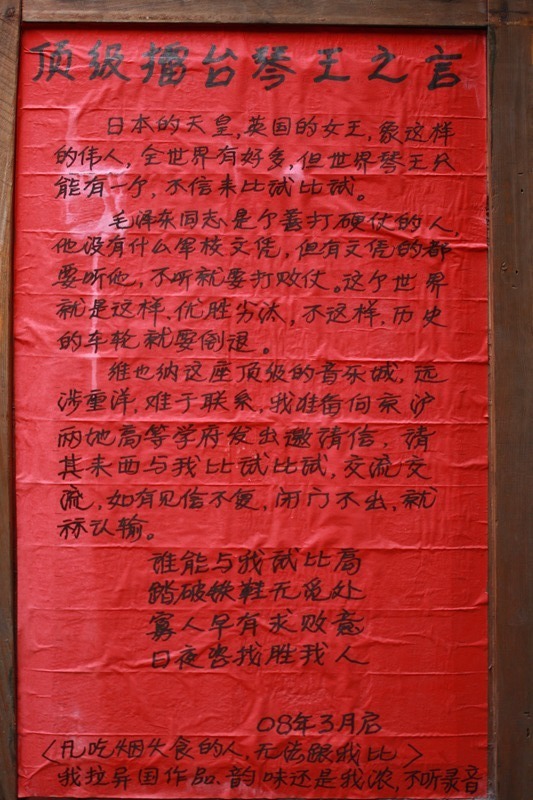 顶级擂台琴王之言
日本的天皇,英国的女王,象这样
的伟人,全世界有好多,但世界琴王只
能有一个,不信来比试比试。
毛泽东同志是个善打硬仗的人,
他没有什么军校文凭,但有文凭的都
要听他,不听就要打败仗。这个世界
就是这样,优胜劣汰,不这样,历史
的车轮就要倒退。
维也纳这座顶级的音乐城,远
涉重洋,难于联系,我准备向京沪
两地高等学府发出邀请信,请
其来西与我比试比试,交流交
流,如有见信不便,闭门不出,就
标认输。
谁能与我试比高
踏破铁鞋无觅处
寡人早有求败意
日夜咨找胜我人
08年3月启
〈凡吃烟火食的人,无法跟我比〉
我拉异国作品、韵味还是我浓,不听录音